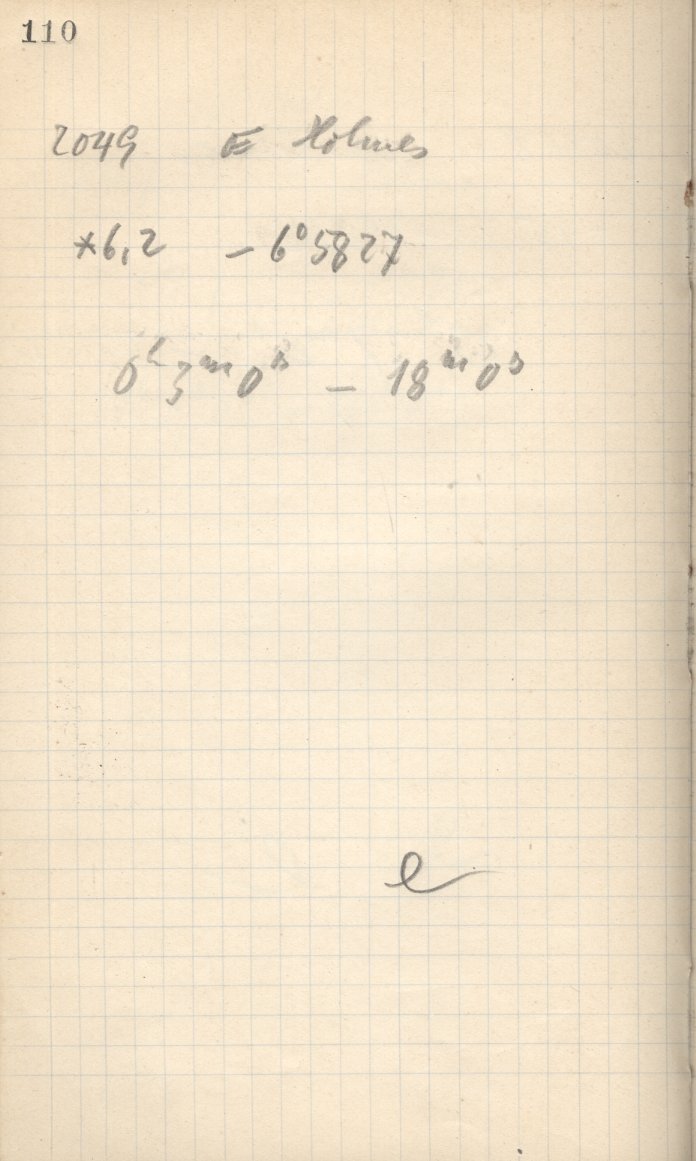 110
2049 E Holmes
*6,2 – 6°5827
0ʰ 3ᵐ 0ˢ – 18ᵐ 0ˢ
e